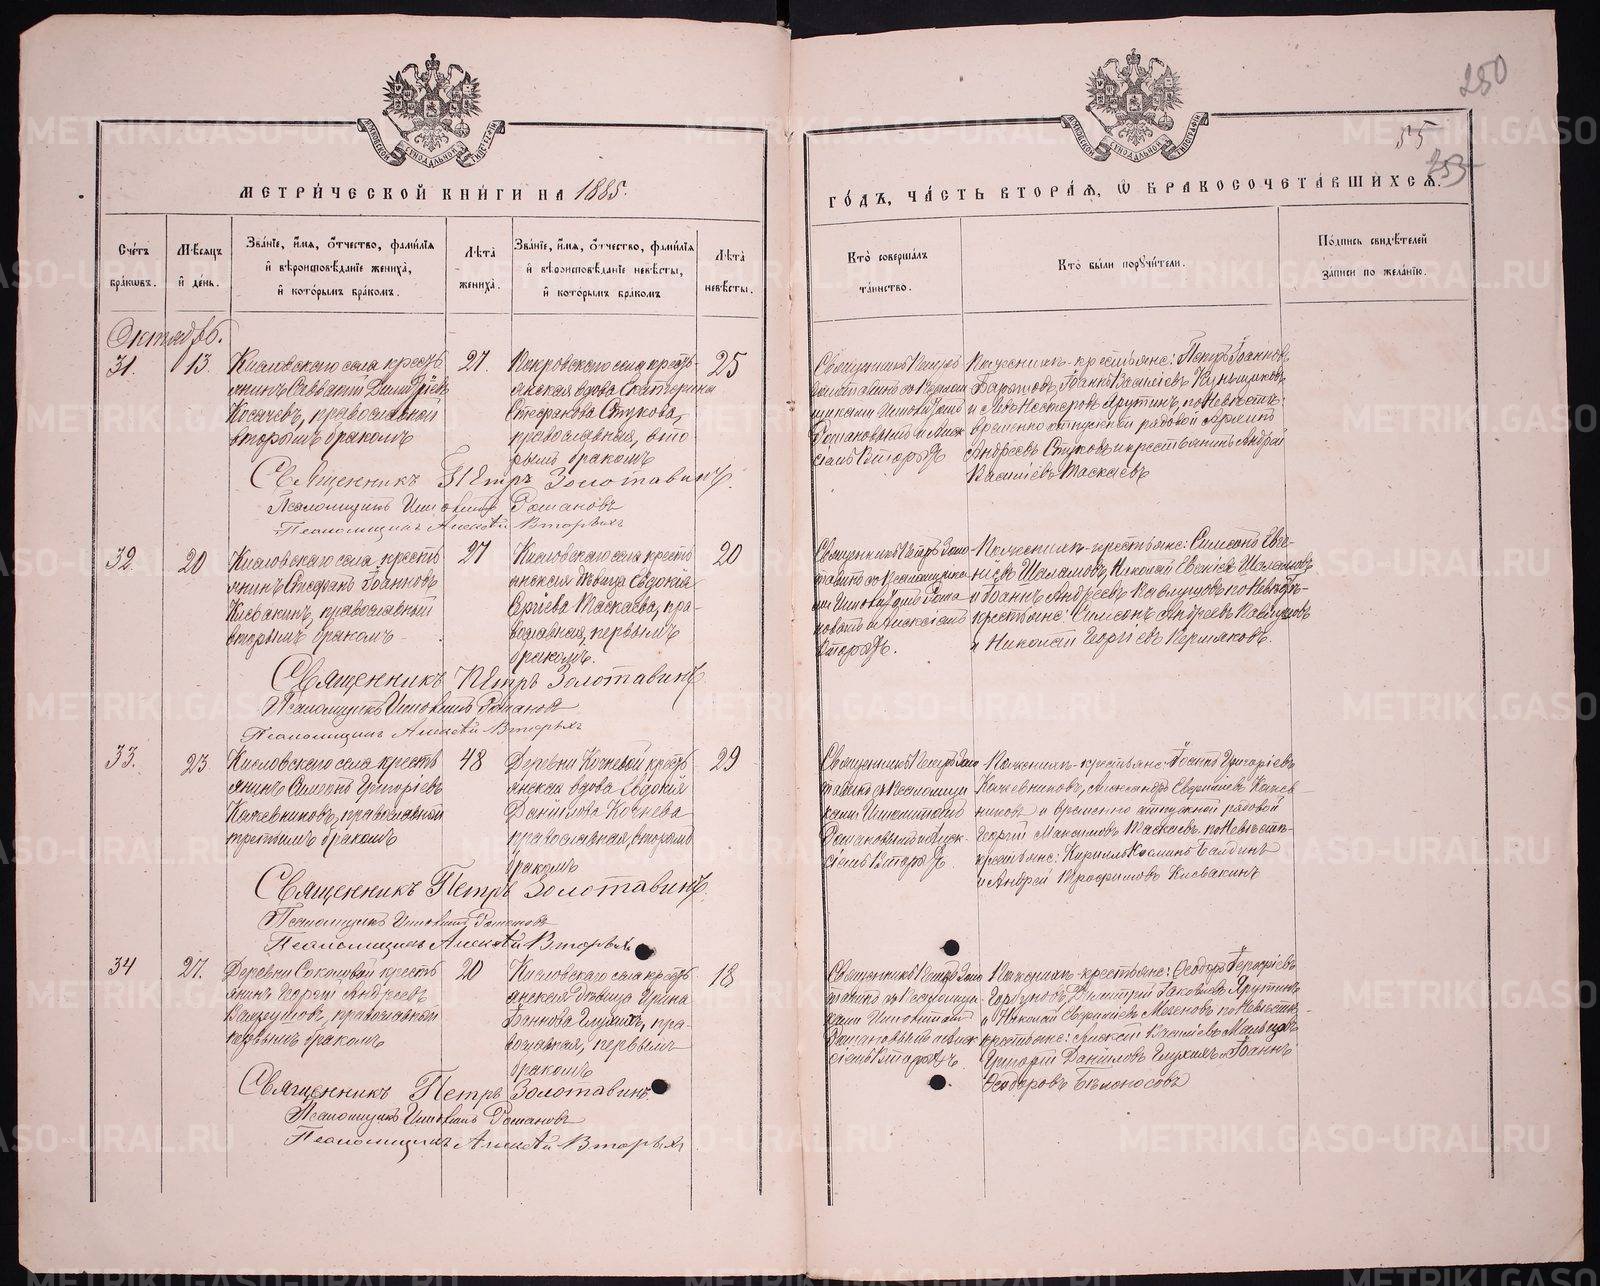 250
55
253
МЕТРИ́ЧЕСКОЙ КНИ́ГИ НА 1885.
ГО́ДЪ, ЧА́СТЬ ВТОРА́Я, Ѽ БРАКОСОЧЕТА́ВШИХСЯ.
Сче́тъ бра́кѡвъ.
Мѣ́сяцъ и҆ де́нь.
Зва́нїе, и҆́мя, ѻ҆́тчество, фами́лїя и҆ вѣроисповѣ́данїе жениха̀, и҆ кото́рымъ бра́комъ.
Лѣ́та жениха̀.
Зва́нїе, и҆́мя, ѻ҆́тчество, фами́лїя и҆ вѣроисповѣ́данїе невѣ́сты, и҆ кото́рымъ бра́комъ
Лѣ́та невѣ́сты.
Кто̀ соверша́лъ та́инство.
Кто̀ бы́ли порꙋчи́тели.
По́дпись свидѣ́телей за́писи по жела́нїю.
Октябрь.
31.
13.
Кисловскаго села кресть-
янинъ Савватiй Димитрiевъ
Косачевъ, православной
вторымъ бракомъ
27.
Покровскаго села кресть-
янская вдова Екатерина
Стефанова Стукова,
православная, вто
рымъ бракомъ
25
Священникъ Петръ
Золотавинъ съ Псалом
щиками Ипполитомъ
Романовымъ и Алек
сѣемъ Вторыхъ
По женихѣ- крестьяне: Петръ Iоанновъ
Iоаннъ Васильевъ
и Левъ Несторовъ Ярутинъ, по невѣстѣ:
временно отпускной рядовой Архипъ
Андреевъ Стуковъ и крестьянинъ Андрей
Васильевъ Таскаевъ
Священникъ Петръ Золотавинъ.
Псаломщикъ Ипполитъ Романовъ
Псаломщикъ Алексѣй Вторыхъ
32.
20
Кисловскаго села кресть
янинъ Стефанъ Iоанновъ
Кисвакинъ, православный
вторымъ бракомъ
27
Кисловскаго села кресть
янская дѣвица Евдокiя
Сергiева Таскаева, пра-
вославная, первымъ
бракомъ.
20
Священникъ Петръ Золо
тавинъ съ Псаломщика
ми Ипполитомъ Рома
новымъ и Алексѣемъ
Вторыхъ.
По женихѣ- крестьяне: Симеонъ Евге-
нiевъ Шаламовъ, Николай Евгенiевъ Шаламовъ
и Iоаннъ Андреевъ по невѣстѣ-
крестьяне: Симеонъ Андреевъ
и Николай Георгiевъ Пермяковъ.
Священникъ Петръ Золотавинъ
Псаломщикъ Ипполитъ Романовъ
Псаломщикъ Алексѣй Вторыхъ
33.
23
Кисловскаго села кресть
янинъ Симеонъ Григорiевъ
Кожевниковъ, православный
третьимъ бракомъ
48
Деревни Кочневой кресть
янская вдова Евдокiя
Данiилова Кочнева
православная, вторымъ
бракомъ
29
Священникъ Петръ Золо
тавинъ съ Псаломщи
ками Ипполитомъ
Романовымъ и Алек
сѣемъ Вторыхъ
По женихѣ- крестьяне: Iоаннъ Григорiевъ
Кожевниковъ, Александръ Кожев-
никовъ и временно отпускной рядовой
Георгiй Максимовъ Таскаевъ. по невѣстѣ-
крестьяне: Кириллъ Косминъ
и Андрей Трофимовъ Кисвакинъ
Священникъ Петръ Золотавинъ.
Псаломщикъ Ипполитъ Романовъ
Псаломщикъ Алексѣй Вторыхъ
34
27.
Деревни Соколовой кресть
янинъ Георгiй Андреевъ
православный
первымъ бракомъ
20
Кисловскаго села кресть
янская дѣвица Ирина
Iоаннова Глухихъ, пра-
вославная, первымъ
бракомъ
18
Священникъ Петръ Золо
тавинъ съ Псаломщи
ками Ипполитомъ
Романовымъ и Алек
сѣемъ Вторыхъ
По женихѣ- крестьяне: Ѳеодоръ
Горбуновъ, Димитрiй Iаковлевъ Ярутинъ
и Николай по невѣстѣ-
крестьяне: Алексѣй Васильевъ Мальцевъ
Григорiй Данiиловъ Глухихъ и Iоаннъ
Ѳеодоровъ Бѣлоносовъ
Священникъ Петръ Золотавинъ.
Псаломщикъ Ипполитъ Романовъ
Псаломщикъ Алексѣй Вторыхъ
METRIKI.GASO-URAL.RU